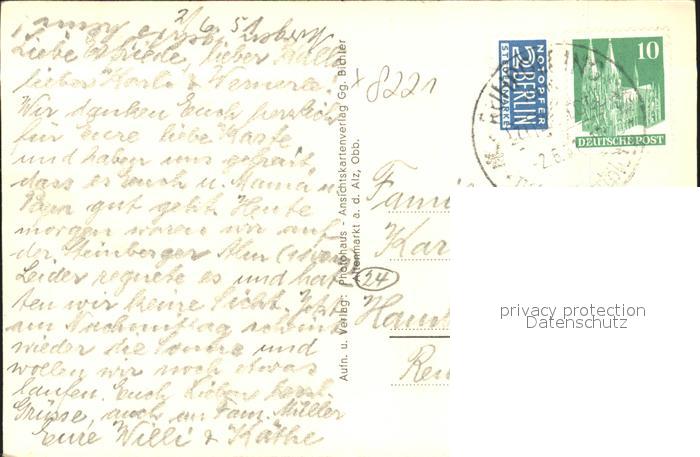 2/6. 51
Liebe Elfriede, lieber
lieber Karli & Werner!
Wir danken Euch herzlich
für Eure liebe Karte
und haben uns gefreut
dass es Euch u. Mama u.
Papa gut geht. Heute
morgen waren wir auf
der Steinberger Alm
Leider regnete es und hat-
ten wir keine Sicht. Jetzt
am Nachmittag scheint
wieder die Sonne und
wollen wir noch etwas
laufen. Euch Lieben herzl.
Grüsse, auch an Fam. Müller
Eure Willi & Käthe
Aufn. u. Verlag: Photohaus - Ansichtskartenverlag Gg. Bichler
Altenmarkt a. d. Alz, Obb.
8221
NOTOPFER
2 BERLIN
STEUERMARKE
10
DEUTSCHE POST
-2.6.
Fami
Kar
24
Haus
Ren
privacy protection
Datenschutz